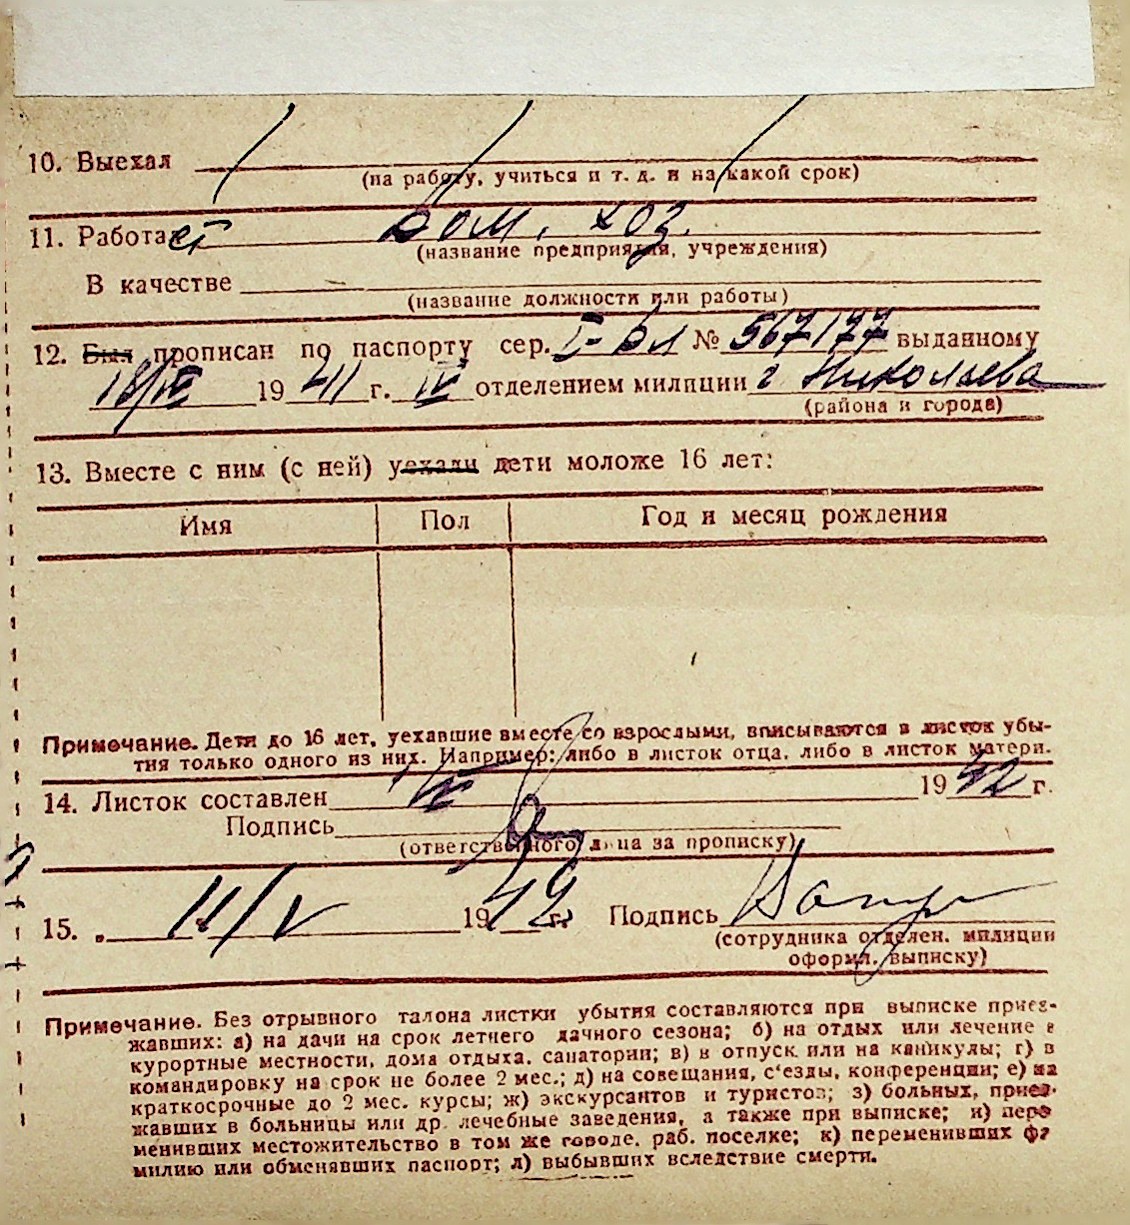 10. Выехал
(на работу, учиться и т. д. и на какой срок)
11. Работает Дом. хоз.
(название предприятия, учреждения)
В качестве
(название должности или работы)
12. Был прописан по паспорту сер. № 567177 выданному
19 41 г. IV отделением милиции г. Николаева
(района и города)
13. Вместе с ним (с ней) уехали дети моложе 16 лет:
Имя Пол Год и месяц рождения
Примечание. Дети до 16 лет, уехавшие вместе со взрослыми, вписываются в листок убы-
тия только одного из них. Например: либо в листок отца, либо в листок матери.
14. Листок составлен 19 42 г.
Подпись
(ответственного лица за прописку)
15. 11/V 19 42 г. Подпись
(сотрудника отделен. милиции
оформл. выписку)
Примечание. Без отрывного талона листки убытия составляются при выписке приез-
жавших: а) на дачи на срок летнего дачного сезона; б) на отдых или лечение в
курортные местности, дома отдыха, санатории; в) в отпуск или на каникулы; г) в
командировку на срок не более 2 мес.; д) на совещания, с'езды, конференции; е) на
краткосрочные до 2 мес. курсы; ж) экскурсантов и туристов; з) больных, приез-
жавших в больницы или др. лечебные заведения, а также при выписке; и) пере
менивших местожительство в том же городе, раб. поселке; к) переменивших фа
милию или обменявших паспорт; л) выбывших вследствие смерти.